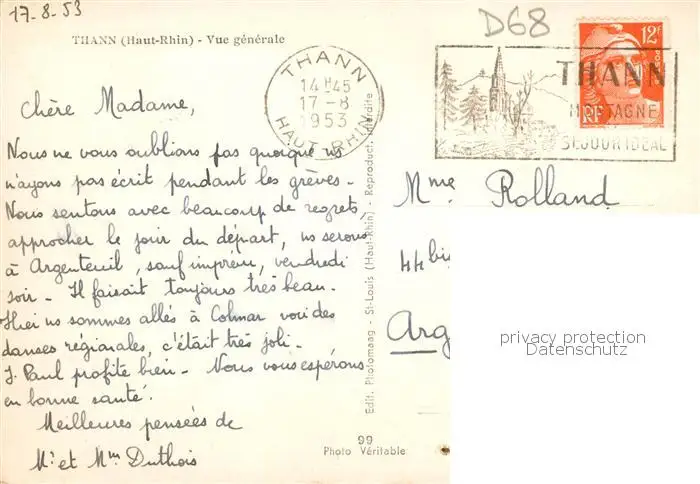 17-8-53
D68
THANN (Haut-Rhin) - Vue générale
THANN
14H45
17-8
1953
HAUT-RHIN
12F
THANN
MONTAGNE
SEJOUR IDEAL
RF
Chère Madame,
Nous ne vous oublions pas quoique ns
n'ayons pas écrit pendant les grèves -
Nous sentons avec beaucoup de regrets
approcher le jour du départ, ns serons
à Argenteuil, sauf imprévu, vendredi
soir - Il faisait toujours très beau -
Hier ns sommes allés à Colmar voir des
danses régionales, c'était très joli -
J. Paul profite bien - Nous vous espérons
en bonne santé.
Meilleures pensées de
Mr et Mme Duthois
Edit. Photomaag - St-Louis (Haut-Rhin) - Reproduct. interdite
99
Photo Véritable
Mme Rolland
44 bis
Arg
privacy protection
Datenschutz